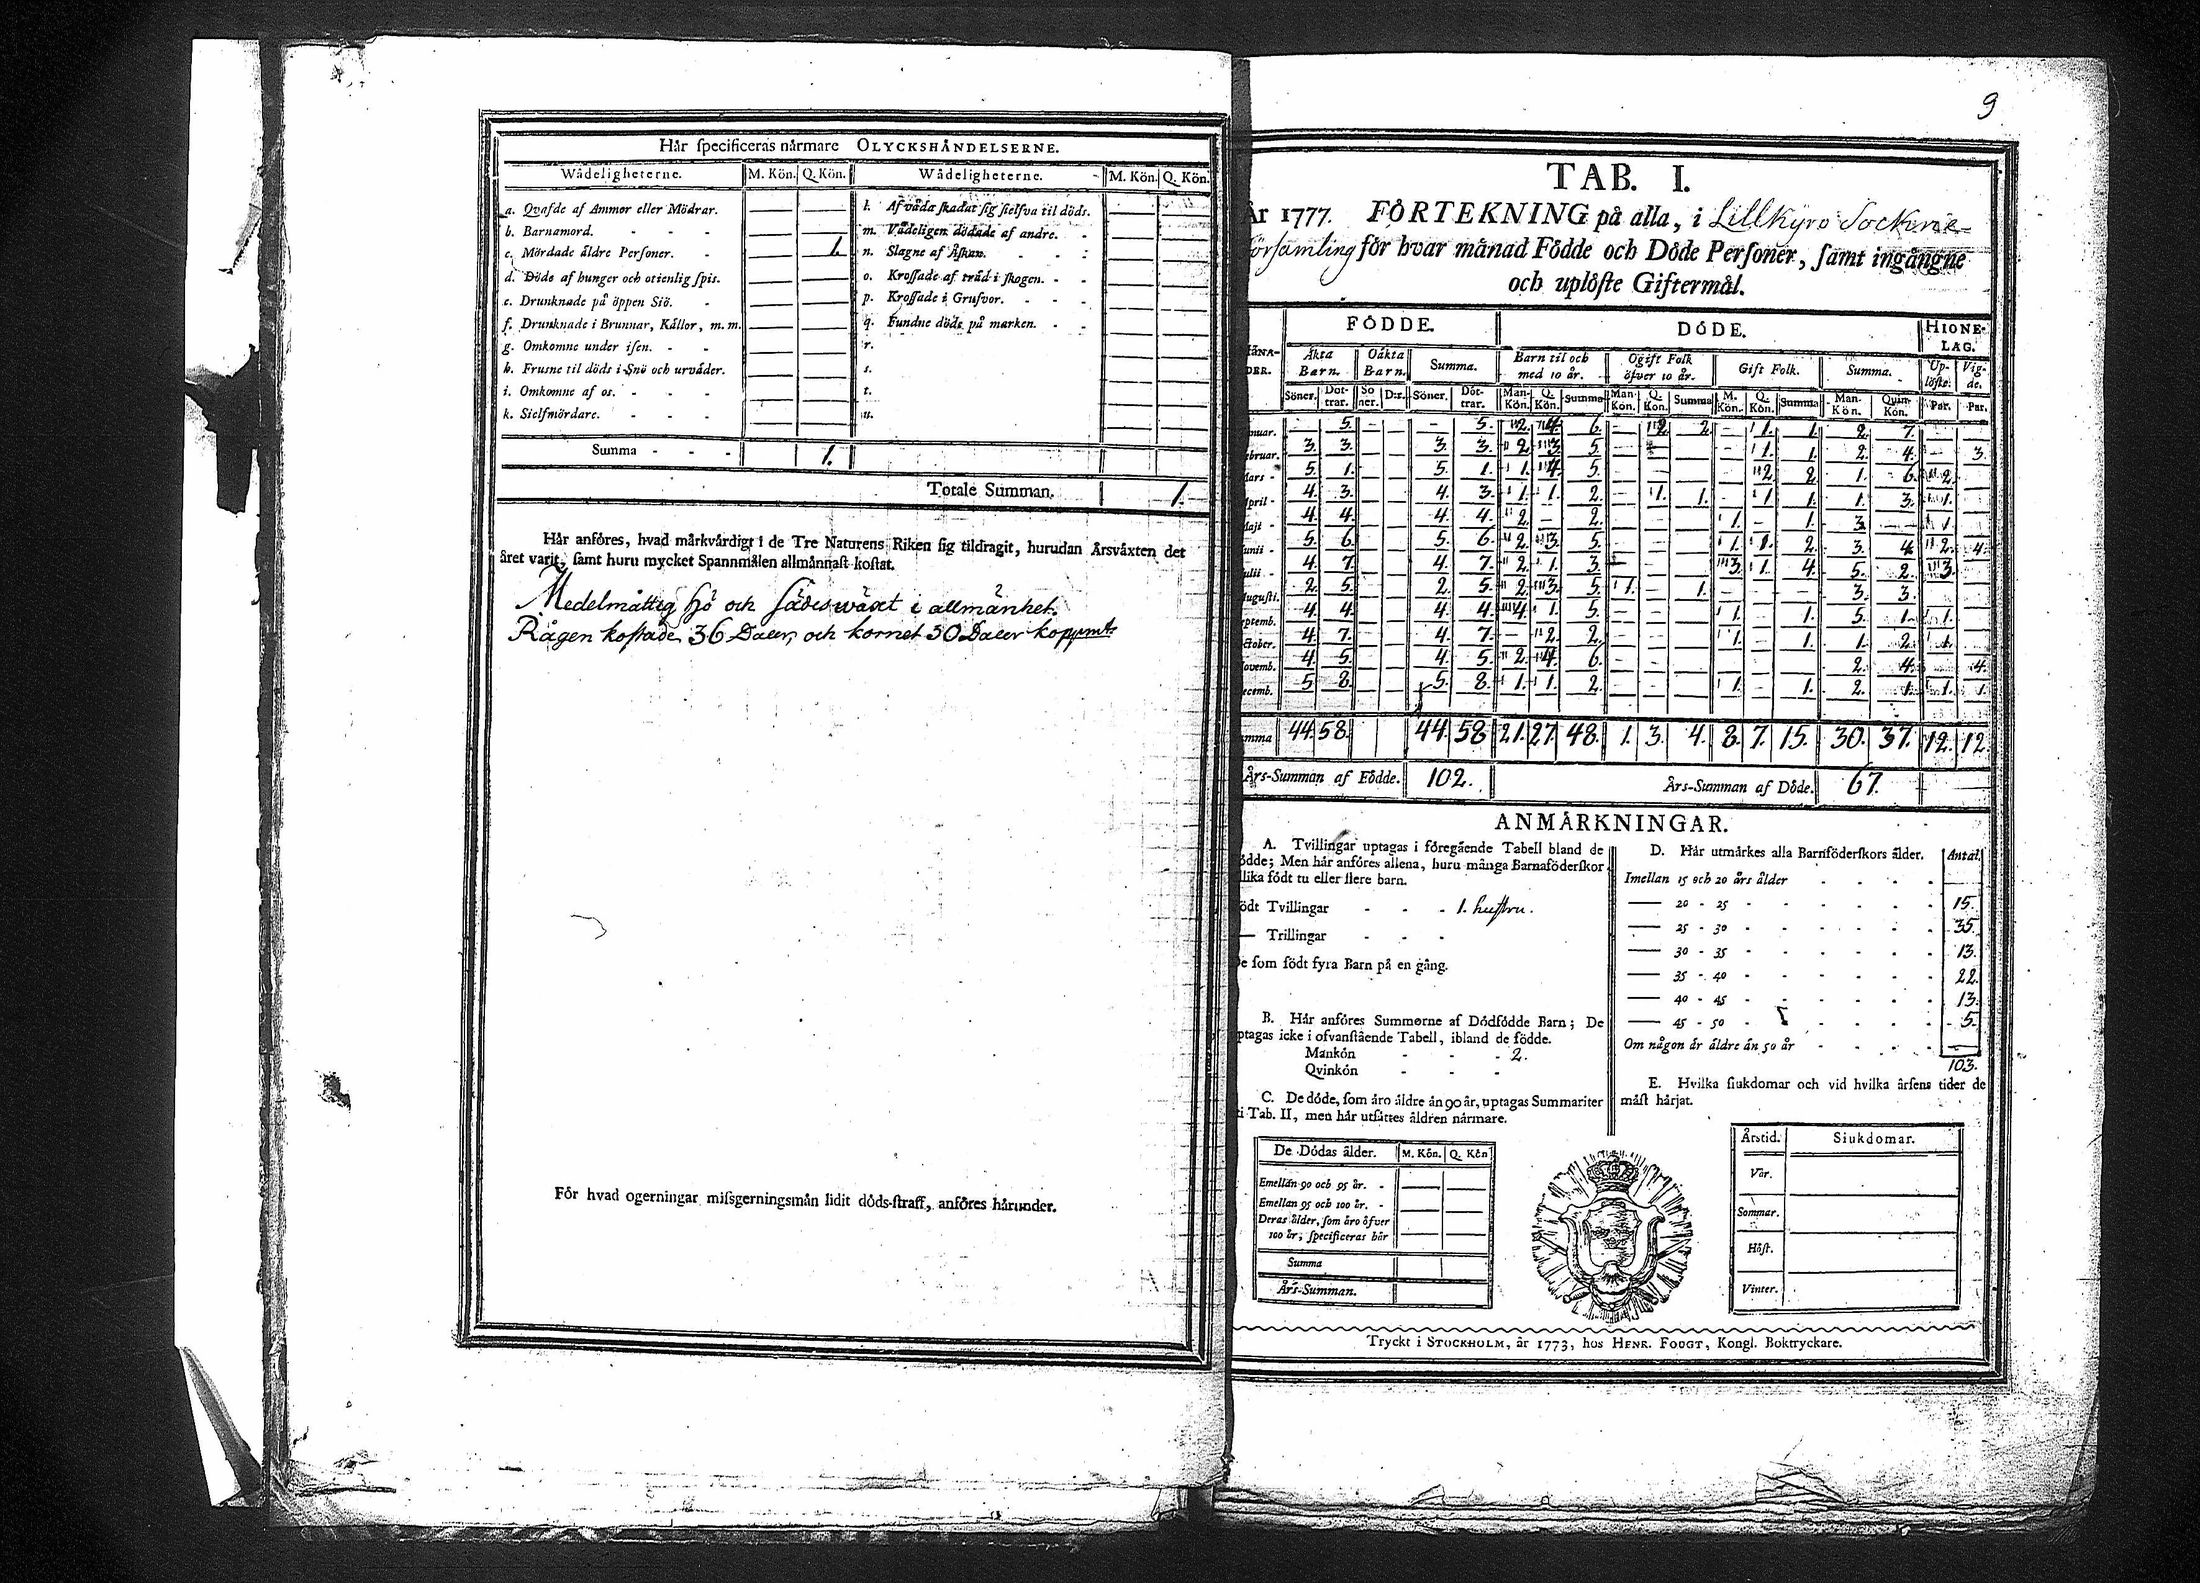 Här specificeras närmare OLYCKSHÄNDELSERNE.
Wådeligheterne. M. Kön. Q. Kön. Wådeligheterne. M. Kön. Q. Kön.
a. Qvafde af Ammor eller Mödrar. — — l. Af våda skadat sig sielfva til döds. — —
b. Barnamord. — — m. Vådeligen dödade af andre. — —
c. Mördade äldre Personer. — 1. n. Slagne af Åskan. — —
d. Döde af hunger och otienlig spis. — — o. Krossade af träd i skogen. — —
e. Drunknade på öppen Siö. — — p. Krossade i Grufvor. — —
f. Drunknade i Brunnar, Källor, m. m. — — q. Fundne döde på marken. — —
g. Omkomne under isen. — — r. — —
h. Frusne til döds i Snö och urväder. — — s. — —
i. Omkomne af os. — — t. — —
k. Sielfmördare. — — u. — —
Summa - - - 1.
Totale Summan. 1.
Här anföres, hvad märkvärdigt i de Tre Naturens Riken sig tildragit, hurudan Årsväxten det
året varit, samt huru mycket Spannmålen allmännast kostat.
Medelmåttig hö och sädeswäxt i allmänhet.
Rågen kostade 36 Daler, och kornet 30 Daler koppmt.
För hvad ogerningar missgerningsmän lidit döds-straff, anföres härunder.
9
TAB. I.
År 1777. FÖRTEKNING på alla, i Lillkyro Sockens
församling för hvar månad Födde och Döde Personer, samt ingångne
och uplöste Giftermål.
FÖDDE. DÖDE. HIONE-LAG.
MÅNA-DER. Äkta Barn. Oäkta Barn. Summa. Barn til och med 10 år. Ogift Folk öfver 10 år. Gift Folk. Summa. Up-löste. Vig-de.
Söner. Döt-trar. Sö ner. D:r. Söner. Döt-trar. Man-Kön. Q. Kön. Summa Man Kön. Q. Kön. Summa M. Kön. Q. Kön. Summa Man-Kön. Qvin-Kön. Par. Par.
nuar. - 5. - - - 5. 2. 4. 6. - 2. 2. - 1. 1. 2. 7. - -
ebruar. 3. 3. - - 3. 3. 2. 3. 5. - - - - 1. 1. 2. 4. - 3.
ars - 5. 1. - - 5. 1. 1. 4. 5. - - - - 2. 2. 1. 6. 2. -
pril - 4. 3. - - 4. 3. 1. 1. 2. - 1. 1. - 1. 1. 1. 3. 1. -
aji - 4. 4. - - 4. 4. 2. - 2. - - - 1. - 1. 3. - 1. -
unii - 5. 6. - - 5. 6. 2. 3. 5. - - - 1. 1. 2. 3. 4. 2. 4.
ulii - 4. 7. - - 4. 7. 2. 1. 3. - - - 3. 1. 4. 5. 2. 3. -
ugusti. 2. 5. - - 2. 5. 2. 3. 5. 1. - 1. - - - 3. 3. - -
ptemb. 4. 4. - - 4. 4. 4. 1. 5. - - - 1. - 1. 5. 1. 1. -
ctober. 4. 7. - - 4. 7. - 2. 2. - - - 1. - 1. 1. 2. 1. -
ovemb. 4. 5. - - 4. 5. 2. 4. 6. - - - - - - 2. 4. - 4.
ecemb. 5 8. - - 5. 8. 1. 1. 2. - - - 1. - 1. 2. 1. 1. 1.
mma 44. 58. 44. 58 21. 27. 48. 1. 3. 4. 8. 7. 15. 30. 37. 12. 12.
Års-Summan af Födde. 102. Års-Summan af Döde. 67.
ANMÄRKNINGAR.
A. Tvillingar uptagas i föregående Tabell bland de
ödde; Men här anföres allena, huru många Barnaföderskor
lika födt tu eller flere barn.
ödt Tvillingar - - - 1. hustru.
— Trillingar - - -
e som födt fyra Barn på en gång.
B. Här anföres Summorne af Dödfödde Barn; De
ptagas icke i ofvanstående Tabell, ibland de födde.
Mankön - - - 2.
Qvinkön - - -
C. De döde, som äro äldre än 90 år, uptagas Summariter
i Tab. II, men här utsättes åldren närmare.
De Dödas ålder. M. Kön. Q. Kön
Emellan 90 och 95 år. - — —
Emellan 95 och 100 år. - — —
Deras ålder, som äro öfver
100 år; specificeras här — —
Summa
Års-Summan.
D. Här utmärkes alla Barnföderskors ålder. Antal.
Imellan 15 och 20 års ålder —
— 20 - 25 15.
— 25 - 30 35.
— 30 - 35 13.
— 35 - 40 22.
— 40 - 45 13.
— 45 - 50 5.
Om någon är äldre än 50 år —
103.
E. Hvilka siukdomar och vid hvilka årsens tider de
mäst härjat.
Årstid. Siukdomar.
Vår.
Sommar.
Höst.
Vinter.
Tryckt i STOCKHOLM, år 1773, hos HENR. FOUGT, Kongl. Boktryckare.